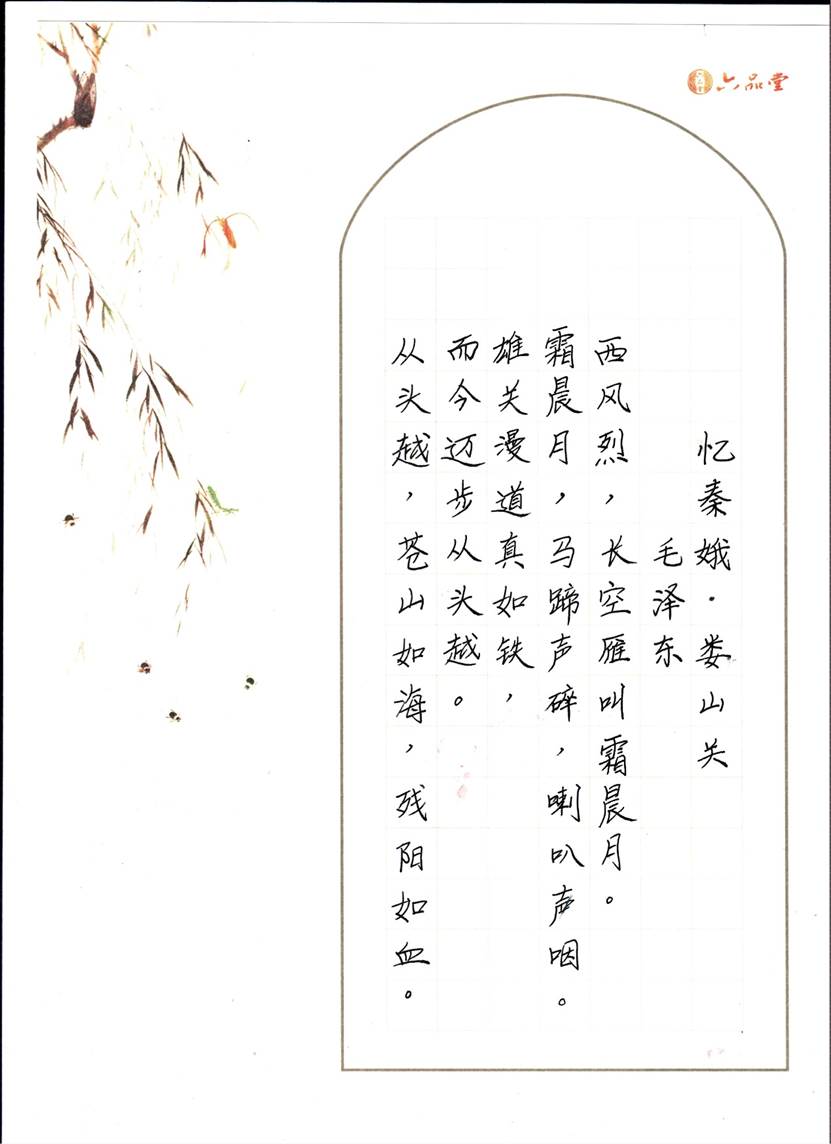 六品堂
忆秦娥·娄山关
毛泽东
西风烈，长空雁叫霜晨月。
霜晨月，马蹄声碎，喇叭声咽。
雄关漫道真如铁，
而今迈步从头越。
从头越，苍山如海，残阳如血。